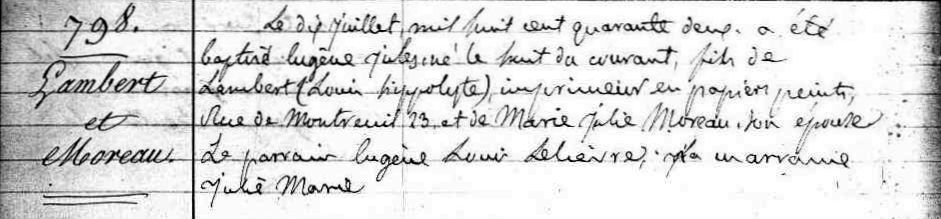 798.
Lambert
et
Moreau.
Le dix Juillet, mil huit cent quarante deux. a été
baptisé Eugène Jules, né le huit du courant, fils de
Lambert (Louis hyppolyte), imprimeur en papiers peints,
Rue de Montreuil 23, et de Marie Julie Moreau. son épouse
Le parrain Eugène Louis Lelièvre, la marraine
Julie Marie